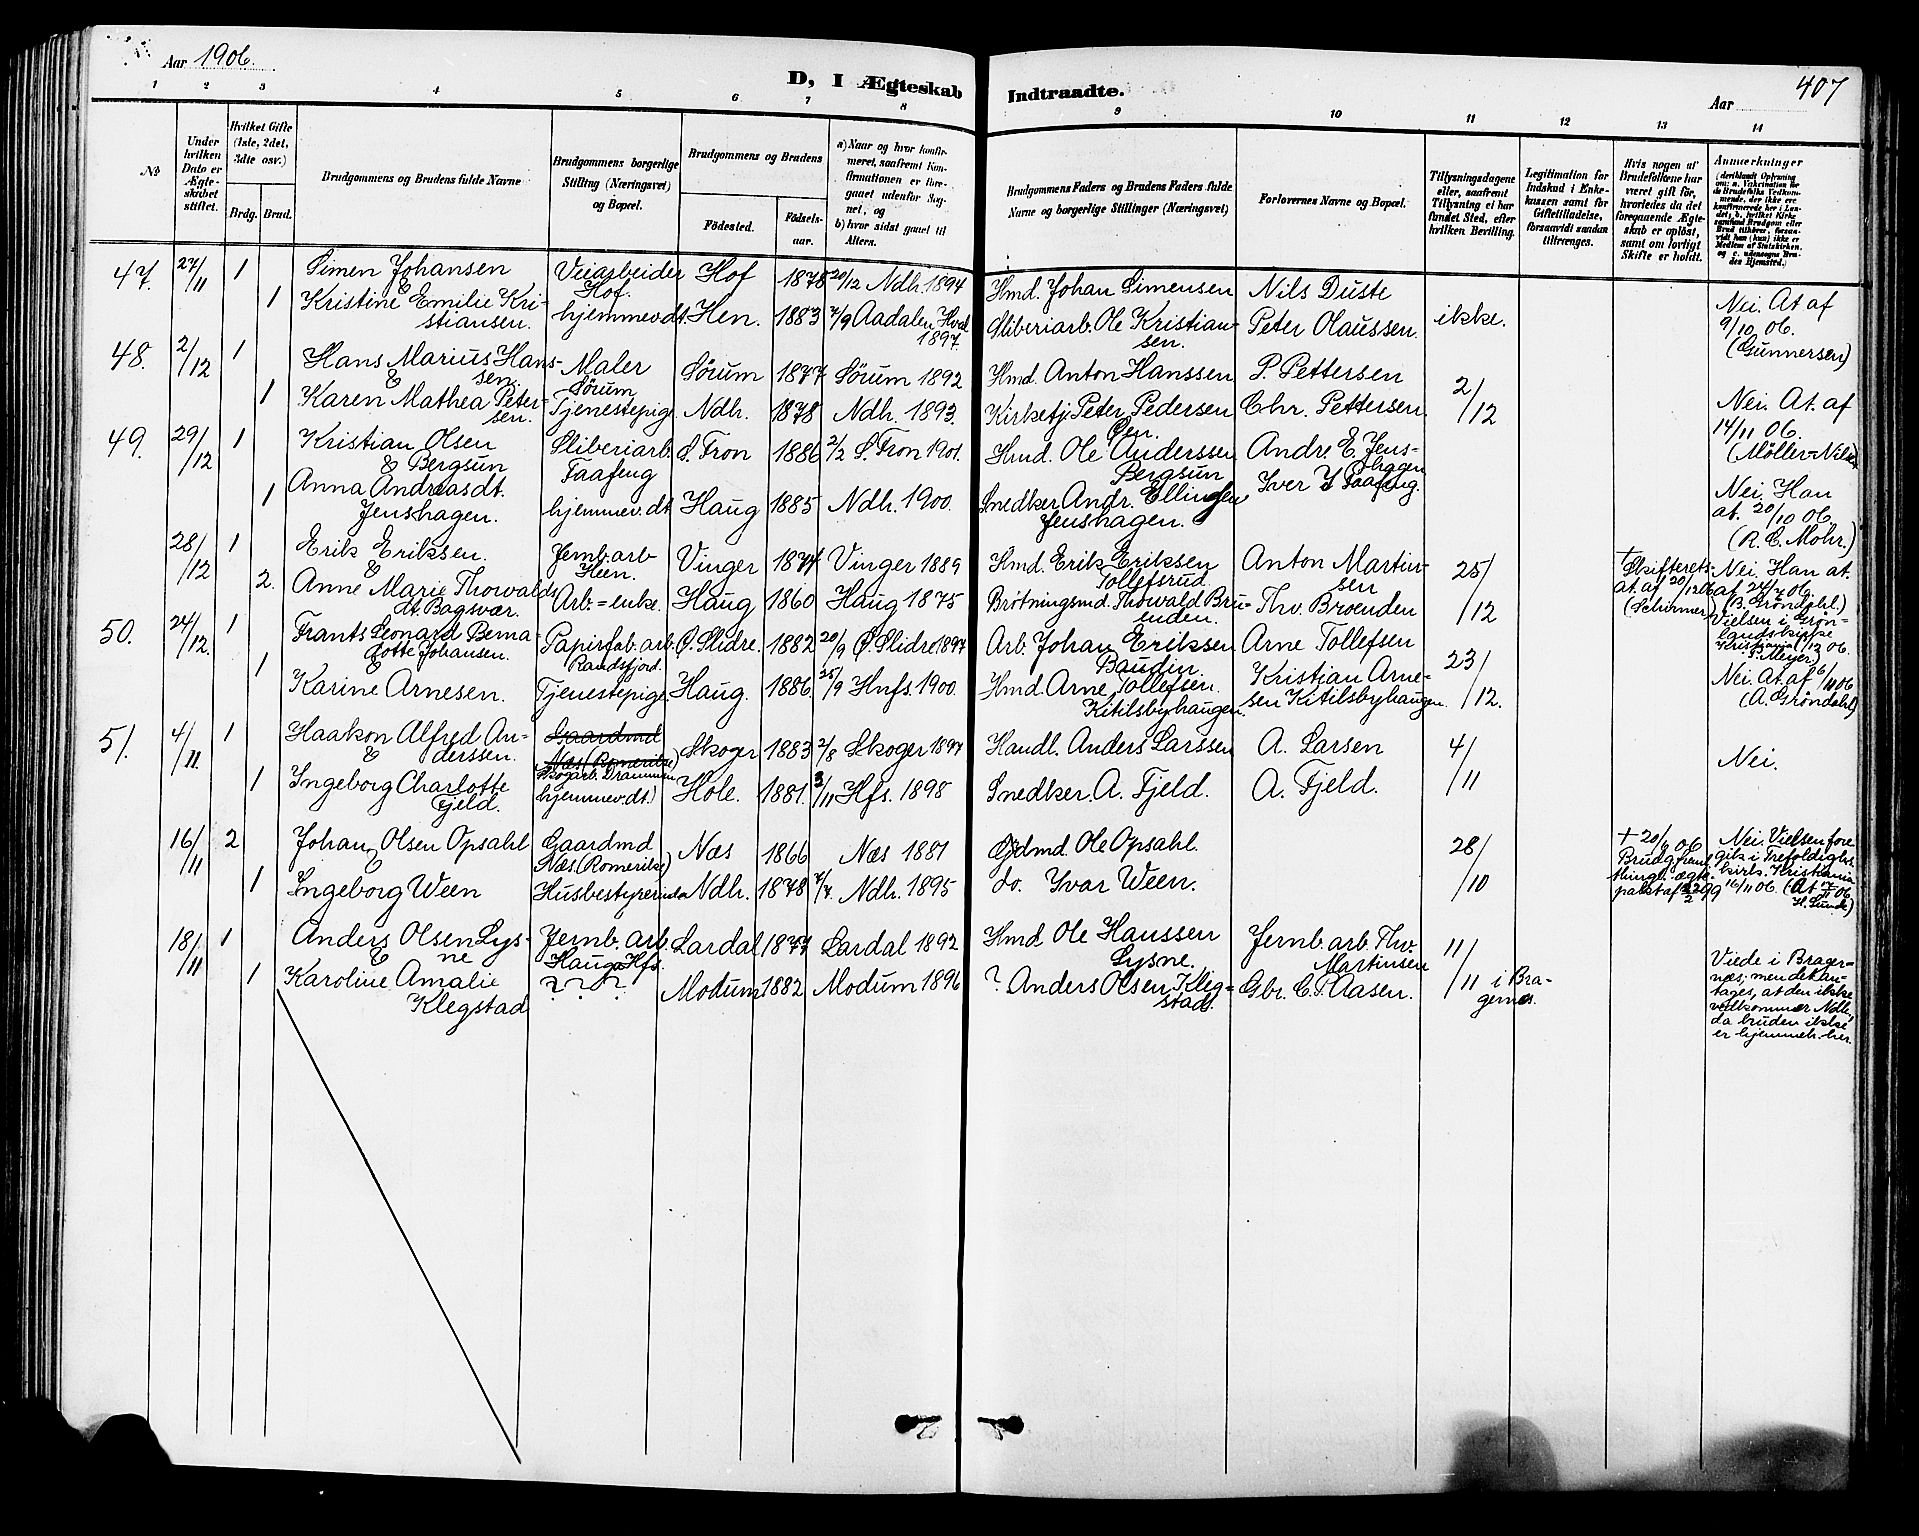 Aar 1906.
D, I Ægteskab Indtraadte.
Aar 407
1 2 3 4 5 6 7 8 9 10 11 12 13 14
No
Under hvilken Dato er Ægteskabet stiftet.
Hvilket Gifte (1ste, 2det, 3die osv.)
Brdg. Brud.
Brudgommens og Brudens fulde Navne
Brudgommens borgerlige Stilling (Næringsvei) og Bopæl.
Brudgommens og Brudens
Fødested. Fødselsaar.
a) Naar og hvor konfirmeret, saafremt Konfirmationen er foregaaet udenfor Sognet, og
b) hvor sidst gaaet til Alters.
Brudgommens Faders og Brudens Faders fulde Navne og borgerlige Stillinger (Næringsvei)
Forlovernes Navne og Bopæl.
Tillysningsdagene eller, saafremt Tillysning ei har fundet Sted, efter hvilken Bevilling.
Legitimation for Indskud i Enkekassen samt for Giftetilladelse, forsaavidt saadan tiltrænges.
Hvis nogen af Brudefolkene har været gift før, hvorledes da det foregaaende Ægteskab er opløst, samt om lovligt Skifte er holdt.
Anmærkninger
47. 27/11 1 Simen Johansen Veiarbeider Hof Hof 1878 20/12 Ndh. 1894 Hmd. Johan Simensen Nils Duste ikke.
&
1 Kristine Emilie Kristiansen. hjemmev.dt. Hen. 1883 4/9 Aadalen Hval 1897. Sliberiarb. Ole Kristiansen. Peter Olaussen. Nei. At af 9/10 06. (Gunnersen)
48. 2/12 1 Hans Marius Hanssen. Maler Sørum Sørum 1877 Sørum 1892 Hmd. Anton Hanssen P. Pettersen 2/12
&
1 Karen Mathea Petersen. Tjenestepige Ndh. 1878 Ndh. 1893. Kirketj. Peter Pedersen Øen. Chr. Pettersen. Nei. At. af 14/11 06. (Møller-Nilsen
49. 29/12 1 Kristian Olsen Bergsun Sliberiarb. Taafeng S. Fron 1886 2/2 S. Fron 1901. Hmd. Ole Anderssen Bergsun Andre E. Jenshagen
&
1 Anna Andreasdt. Jenshagen. hjemmev.dt. Haug 1885 Ndh. 1900. Snedker Andr. Ellingsen Jenshagen. Iver I Taafeng. Nei. Han at. 20/10 06. (R. C. Mohr.)
28/12 1 Erik Eriksen. Jernb.arb Heen. Vinger 1874 Vinger 1889 Hmd. Erik Eriksen Tollefsrud. Anton Martinsen 25/12
&
2. Anne Marie Thorvaldsdt. Bagsvær. Arb.=enke. Haug 1860 Haug 1875 Brøtningsmd. Thorvald Bruenden. Thv. Broenden † Skifteretsat. af 20/12 06 (Schirmer) Nei. Han at. af 24/7 06. (B. Grøndahl.) Vielsen i Grønlandskirke Kristiania 1/12 06. (Meyer.)
50. 24/12. 1 Frants Leonard Bernadotte Johansen. Papirfab.arb. Randsfjord. Ø. Slidre. 1882 20/9 Ø. Slidre 1897 Arb. Johan Eriksen Baudin Arne Tollefsen 23/12.
&
1 Karine Arnesen. Tjenestepige Haug. 1886. 25/9 Hnfs. 1900. Hmd. Arne Tollefsen. Kitilsbyhaugen. Kristian Arnesen Kitilsbyhaugen Nei. At. af 6/11 06 (A. Grøndahl)
51. 4/11. 1 Haakon Alfred Anderssen. Gaardmd Næs (Romerike) Skogarb. Drammen Skoger 1883 2/8 Skoger 1897 Handl. Anders Larssen A. Larsen 4/11 Nei.
&
1 Ingeborg Charlotte Fjeld. hjemmev.dt.) Hole. 1881. 3/11 Hfs. 1898 Snedker. A. Fjeld. A. Fjeld.
16/11 2 Johan Olsen Opsahl Gaardmd Næs. (Romerike) Næs 1866 Næs 1881 Gdmd. Ole Opsahl. 28/10
&
1 Ingeborg Ween Husbestyrerinde Ndh. 1878 4/4. Ndh. 1895 do. Ivar Ween. † 20/6 06 Nei. Vielsen foregik i Trefoldighs. kirk. Kristiania 16/11 06. (At 06 H. Lunde)
18/11 1 Anders Olsen Lysne Jernb. arb. Hauga Hfs. Lardal 1877 Lardal 1892 Hmd Ole Hanssen Lysne. Jernb. arb. Thv. Martinsen 11/11 i Bragernæs.
&
1 Karoline Amalie Klegstad ? ? ? Modum 1882 Modum 1896 ? Anders Olsen Klegstad. Gbr. C. Aasen. Viede i Bragernæs; men det antages, at den ikke vedkommer Ndh., da bruden ikke er hjemmeh. her.